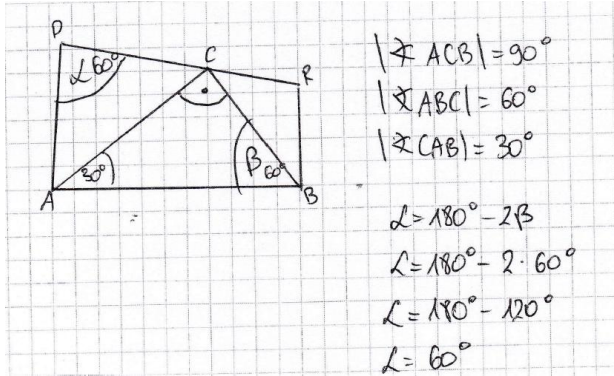 P
C
R
α 60°
30°
β 60°
A
B
|∡ ACB| = 90°
|∡ ABC| = 60°
|∡ CAB| = 30°
α = 180° - 2β
α = 180° - 2 · 60°
α = 180° - 120°
α = 60°